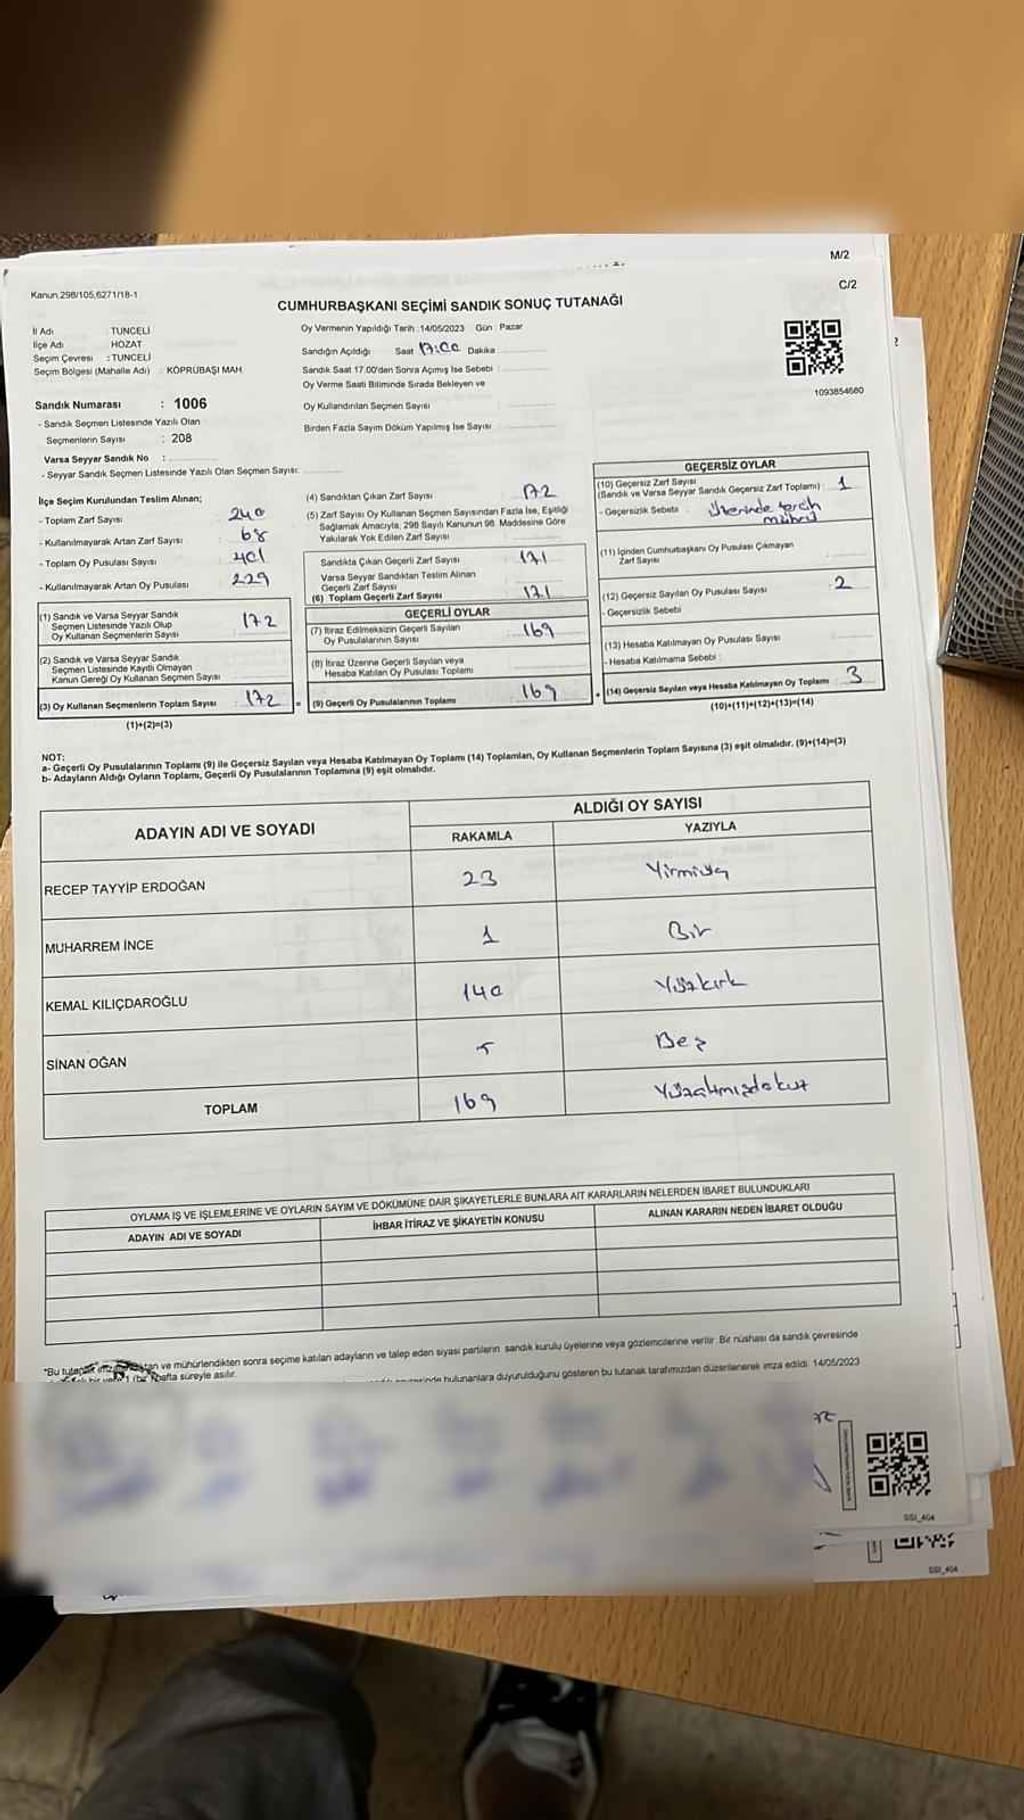 M/2
C/2
Kanun 298/105,6271/18-1
CUMHURBAŞKANI SEÇİMİ SANDIK SONUÇ TUTANAĞI
İl Adı TUNCELİ
İlçe Adı HOZAT
Seçim Çevresi : TUNCELİ
Seçim Bölgesi (Mahalle Adı) : KÖPRÜBAŞI MAH.
Oy Vermenin Yapıldığı Tarih :14/05/2023 Gün : Pazar
Sandığın Açıldığı Saat 17:00 Dakika
Sandık Saat 17.00'den Sonra Açımış İse Sebebi :
Oy Verme Saati Bitiminde Sırada Bekleyen ve
Oy Kullandırılan Seçmen Sayısı
Birden Fazla Sayım Döküm Yapılmış İse Sayısı
1093854680
Sandık Numarası : 1006
- Sandık Seçmen Listesinde Yazılı Olan
Seçmenlerin Sayısı : 208
Varsa Seyyar Sandık No :
- Seyyar Sandık Seçmen Listesinde Yazılı Olan Seçmen Sayısı:
İlçe Seçim Kurulundan Teslim Alınan;
- Toplam Zarf Sayısı 240
- Kullanılmayarak Artan Zarf Sayısı 68
- Toplam Oy Pusulası Sayısı 401
- Kullanılmayarak Artan Oy Pusulası 229
(1) Sandık ve Varsa Seyyar Sandık
Seçmen Listesinde Yazılı Olup
Oy Kullanan Seçmenlerin Sayısı 172
(2) Sandık ve Varsa Seyyar Sandık
Seçmen Listesinde Kayıtlı Olmayan
Kanun Gereği Oy Kullanan Seçmen Sayısı
(3) Oy Kullanan Seçmenlerin Toplam Sayısı 172
(1)+(2)=(3)
(4) Sandıktan Çıkan Zarf Sayısı 172
(5) Zarf Sayısı Oy Kullanan Seçmen Sayısından Fazla İse, Eşitliği
Sağlamak Amacıyla, 298 Sayılı Kanunun 98. Maddesine Göre
Yakılarak Yok Edilen Zarf Sayısı
Sandıkta Çıkan Geçerli Zarf Sayısı 171
Varsa Seyyar Sandıktan Teslim Alınan
Geçerli Zarf Sayısı
(6) Toplam Geçerli Zarf Sayısı 171
GEÇERLİ OYLAR
(7) İtiraz Edilmeksizin Geçerli Sayılan
Oy Pusulalarının Sayısı 169
(8) İtiraz Üzerine Geçerli Sayılan veya
Hesaba Katılan Oy Pusulası Toplamı
= (9) Geçerli Oy Pusulalarının Toplamı 169
GEÇERSİZ OYLAR
(10) Geçersiz Zarf Sayısı
(Sandık ve Varsa Seyyar Sandık Geçersiz Zarf Toplamı) : 1
- Geçersizlik Sebebi : Üzerinde tercih
mührü
(11) İçinden Cumhurbaşkanı Oy Pusulası Çıkmayan
Zarf Sayısı
(12) Geçersiz Sayılan Oy Pusulası Sayısı : 2
- Geçersizlik Sebebi :
(13) Hesaba Katılmayan Oy Pusulası Sayısı :
- Hesaba Katılmama Sebebi :
+ (14) Geçersiz Sayılan veya Hesaba Katılmayan Oy Toplamı 3
(10)+(11)+(12)+(13)=(14)
NOT:
a- Geçerli Oy Pusulalarının Toplamı (9) ile Geçersiz Sayılan veya Hesaba Katılmayan Oy Toplamı (14) Toplamları, Oy Kullanan Seçmenlerin Toplam Sayısına (3) eşit olmalıdır. (9)+(14)=(3)
b- Adayların Aldığı Oyların Toplamı, Geçerli Oy Pusulalarının Toplamına (9) eşit olmalıdır.
ADAYIN ADI VE SOYADI ALDIĞI OY SAYISI
RAKAMLA YAZIYLA
RECEP TAYYİP ERDOĞAN 23 Yirmiüç
MUHARREM İNCE 1 Bir
KEMAL KILIÇDAROĞLU 140 Yüzkırk
SİNAN OĞAN 5 Beş
TOPLAM 169 Yüzaltmışdokuz
OYLAMA İŞ VE İŞLEMLERİNE VE OYLARIN SAYIM VE DÖKÜMÜNE DAİR ŞİKAYETLERLE BUNLARA AİT KARARLARIN NELERDEN İBARET BULUNDUKLARI
ADAYIN ADI VE SOYADI İHBAR İTİRAZ VE ŞİKAYETİN KONUSU ALINAN KARARIN NEDEN İBARET OLDUĞU
*Bu tutanak ve mühürlendikten sonra seçime katılan adayların ve talep eden siyasi partilerin sandık kurulu üyelerine veya gözlemcilerine verilir. Bir nüshası da sandık çevresinde
hafta süreyle asılır.
bulunanlara duyurulduğunu gösteren bu tutanak tarafımızdan düzenlenerek imza edildi. 14/05/2023
SSI_404
SSI_404